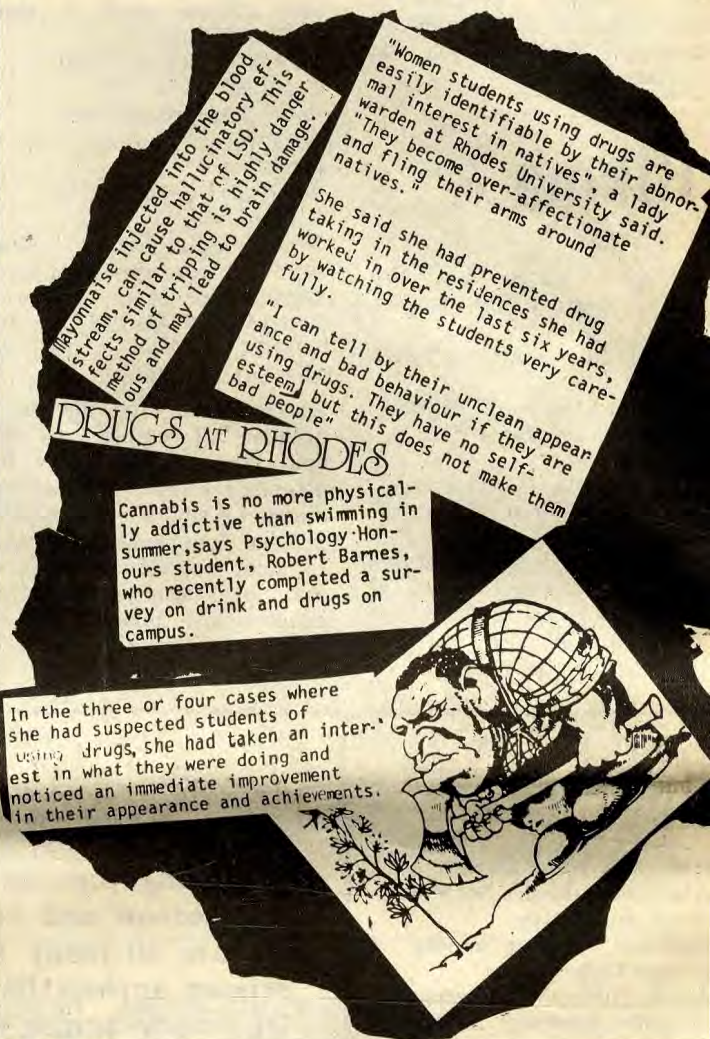 Mayonnaise injected into the blood
stream, can cause hallucinatory ef-
fects similar to that of LSD. This
method of tripping is highly danger
ous and may lead to brain damage.
"Women students using drugs are
easily identifiable by their abnor-
mal interest in natives", a lady
warden at Rhodes University said.
"They become over-affectionate
and fling their arms around
natives."
She said she had prevented drug
taking in the residences she had
worked in over the last six years,
by watching the students very care-
fully.
"I can tell by their unclean appear
ance and bad behaviour if they are
using drugs. They have no self-
esteem, but this does not make them
bad people"
DRUGS AT RHODES
Cannabis is no more physical-
ly addictive than swimming in
summer,says Psychology Hon-
ours student, Robert Barnes,
who recently completed a sur-
vey on drink and drugs on
campus.
In the three or four cases where
she had suspected students of
using drugs, she had taken an inter-
est in what they were doing and
noticed an immediate improvement
in their appearance and achievements.